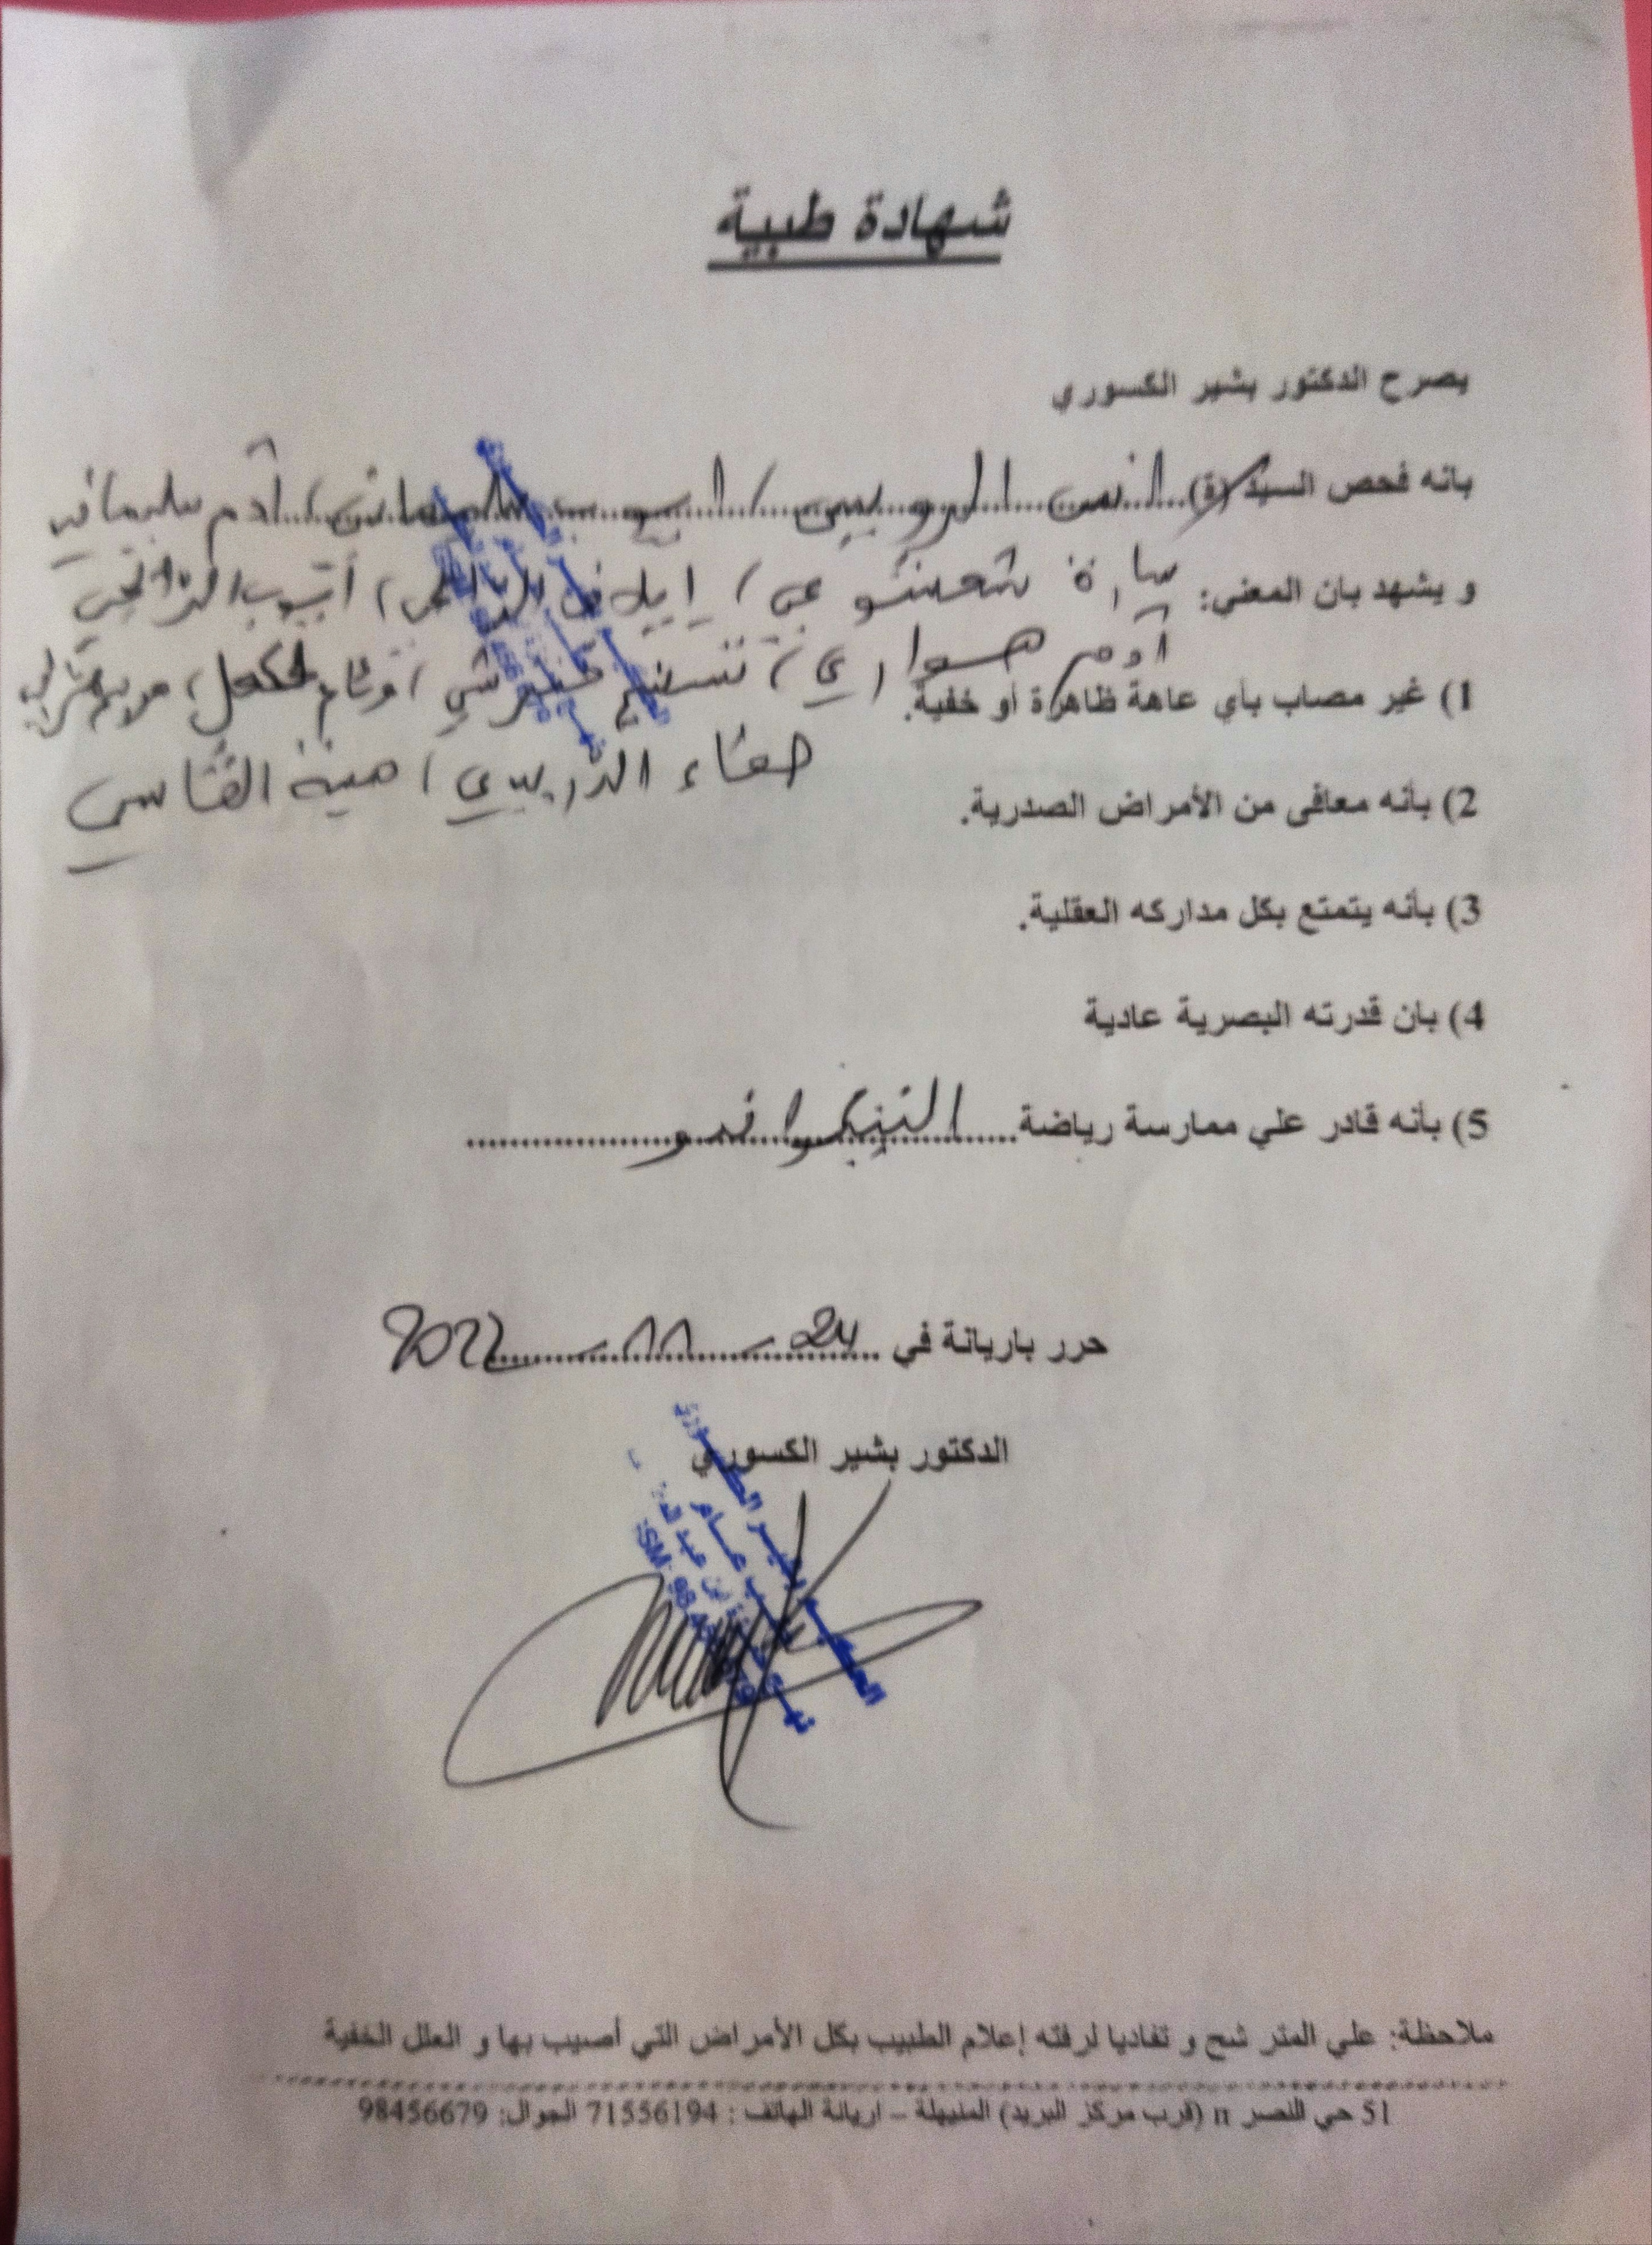 شهادة طبية
يصرح الدكتور بشير الكسوري
بانه فحص السيد(ة) انس الرويسي / ايوب سليماني / آدم سليماني
و يشهد بان المعني: سارة / إيلاف / أيوب
آدم هواري / تسنيم / /
1) غير مصاب بأي عاهة ظاهرة أو خفية.
صفاء الدريدي / امينة القاسي
2) بأنه معافى من الأمراض الصدرية.
3) بأنه يتمتع بكل مداركه العقلية.
4) بان قدرته البصرية عادية
5) بأنه قادر علي ممارسة رياضة التيكواندو
حرر باريانة في 24 - 11 - 2022
الدكتور بشير الكسوري
ملاحظة: علي المترشح و تفاديا لرفته إعلام الطبيب بكل الأمراض التي أصيب بها و العلل الخفية
51 حي النصر II (قرب مركز البريد) المنيهلة – اريانة الهاتف : 71556194 الجوال: 98456679